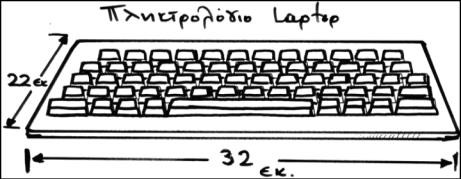 Πληκτρολόγιο Laptop
22 εκ
32 εκ.